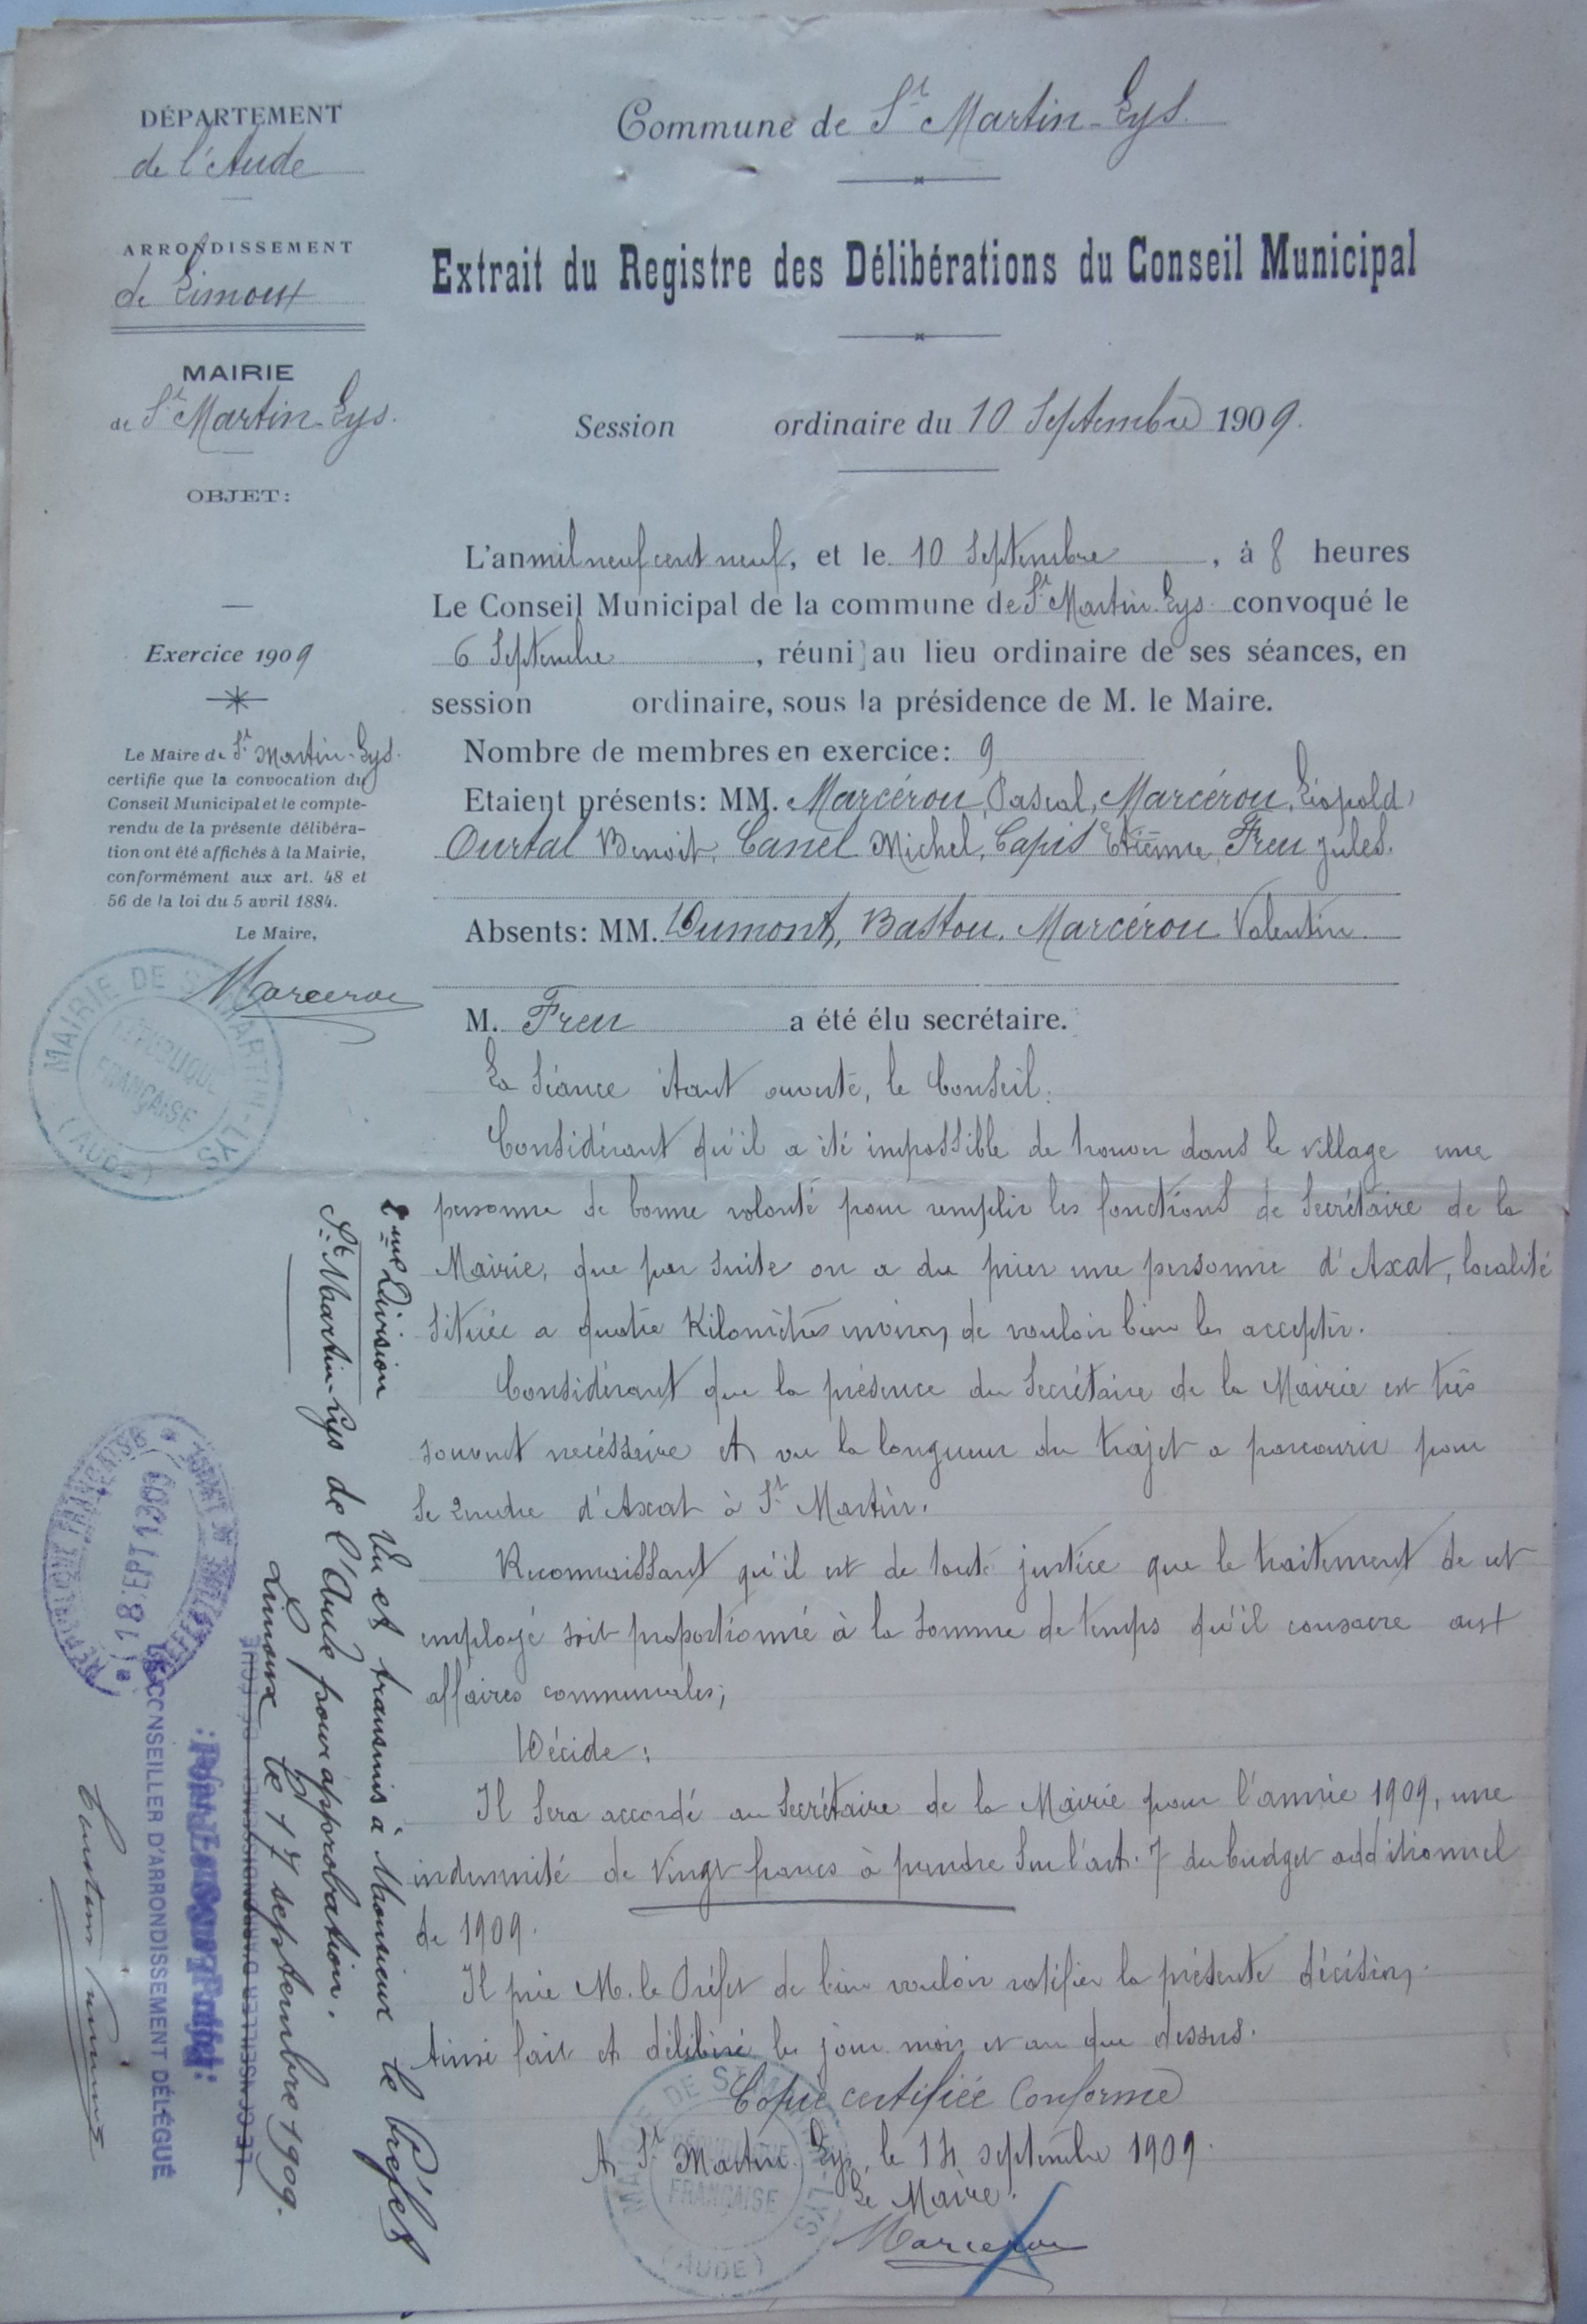 DÉPARTEMENT
de l'Aude
ARRONDISSEMENT
de Limoux
MAIRIE
de St Martin-Lys.
OBJET:
Exercice 1909
Le Maire de St Martin-Lys.
certifie que la convocation du
Conseil Municipal et le compte-
rendu de la présente délibéra-
tion ont été affichés à la Mairie,
conformément aux art. 48 et
56 de la loi du 5 avril 1884.
Le Maire,
Marcerou
MAIRIE DE ST MARTIN-LYS
RÉPUBLIQUE
FRANÇAISE
(AUDE)
Commune de St Martin-Lys.
Extrait du Registre des Délibérations du Conseil Municipal
Session ordinaire du 10 Septembre 1909.
L'an mil neuf cent neuf, et le 10 Septembre, à 8 heures
Le Conseil Municipal de la commune de St Martin-Lys convoqué le
6 Septembre, réuni au lieu ordinaire de ses séances, en
session ordinaire, sous la présidence de M. le Maire.
Nombre de membres en exercice: 9
Etaient présents: MM. Marcérou Pascal, Marcérou Léopold,
Ourtal Benoit, Canel Michel, Capis Etienne, Freu Jules.
Absents: MM. Dumont, Bastou, Marcérou Valentin
M. Freu a été élu secrétaire.
La Séance étant ouverte, le Conseil:
Considérant qu'il a été impossible de trouver dans le village une
personne de bonne volonté pour remplir les fonctions de Secrétaire de la
Mairie, que par suite on a du prier une personne d'Axat, localité
située a quatre Kilomètres environ, de vouloir bien les accepter.
Considérant que la présence du Secrétaire de la Mairie est très
souvent necéssaire et vu la longueur du trajet a parcourir pour
se rendre d'Axat à St Martin.
Reconnaissant qu'il est de toute justice que le traitement de cet
employé soit proportionné à la somme de temps qu'il consacre aux
affaires communales;
Décide:
Il sera accordé au Secrétaire de la Mairie pour l'année 1909, une
indemnité de vingt francs à prendre sur l'art. 7 du budget additionnel
de 1909.
Il prie M. le Préfet de bien vouloir ratifier la présente décision.
Ainsi fait et délibéré les jour mois et an que dessus.
Copie certifiée Conforme
A St Martin-Lys, le 14 septembre 1909.
Le Maire.
Marcerou
MAIRIE DE ST MARTIN-LYS
RÉPUBLIQUE
FRANÇAISE
(AUDE)
2me Division
St Martin-Lys
Vu et transmis à Monsieur le Préfet
de l'Aude pour approbation.
Limoux le 17 septembre 1909.
LE CONSEILLER D'ARRONDISSEMENT DÉLÉGUÉ
Pour le Sous-Préfet:
LE CONSEILLER D'ARRONDISSEMENT DÉLÉGUÉ
RÉPUBLIQUE FRANÇAISE
18 SEPT 1909